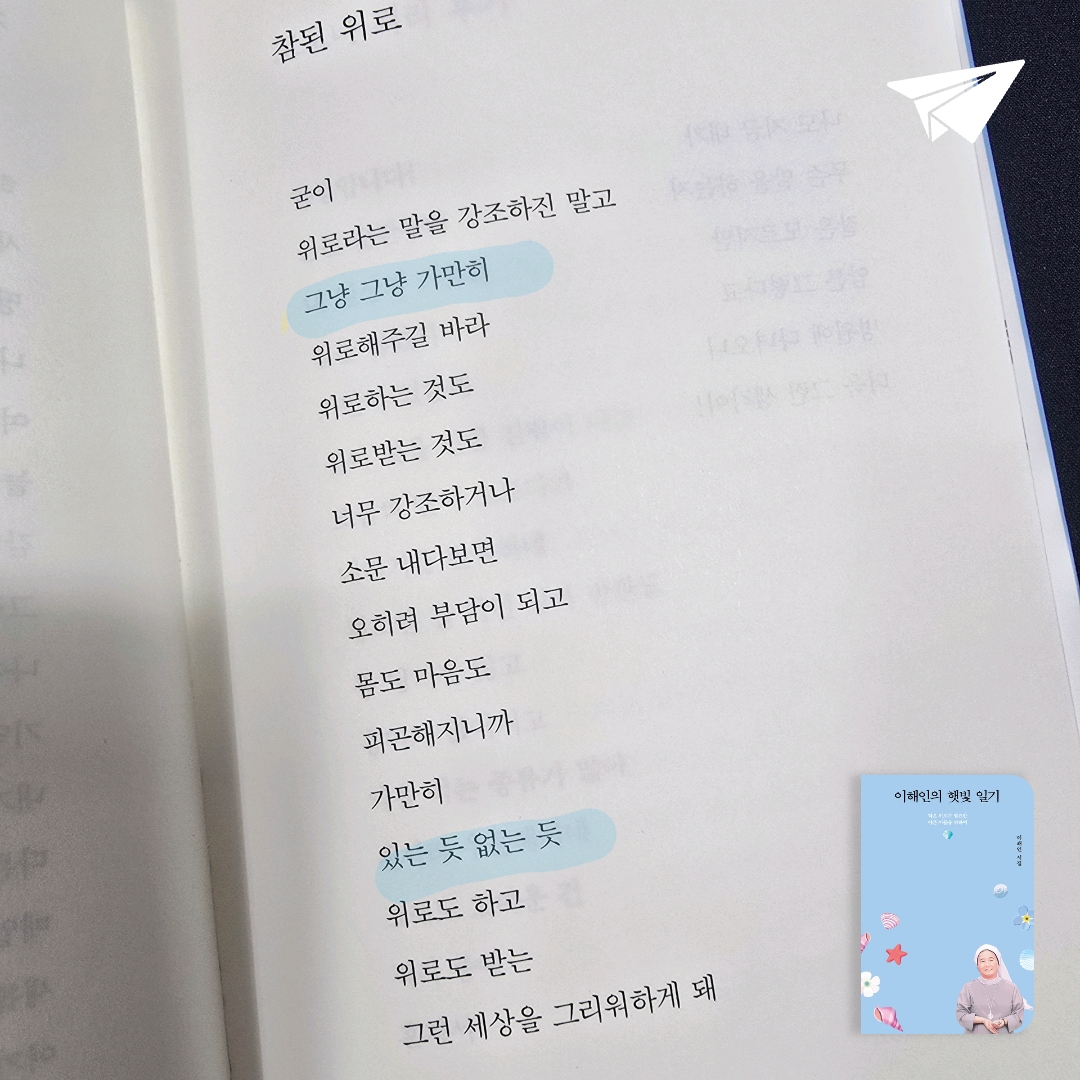 참된 위로
굳이
위로라는 말을 강조하진 말고
그냥 그냥 가만히
위로해주길 바라
위로하는 것도
위로받는 것도
너무 강조하거나
소문 내다보면
오히려 부담이 되고
몸도 마음도
피곤해지니까
가만히
있는 듯 없는 듯
위로도 하고
위로도 받는
그런 세상을 그리워하게 돼
이해인의 햇빛 일기
이해인 시집